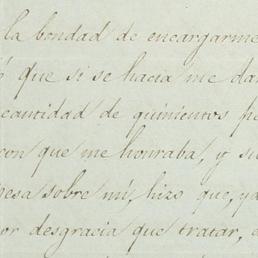 la bondad de encargarme
que si se hacia me dar
cantidad de quinientos pe
con que me honraba, y su
pesa sobre mi, hizo que, ya
or desgracia que tratar, e